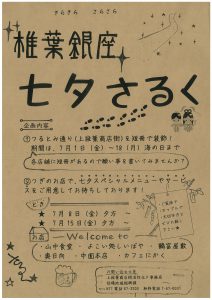 きらきら きらきら
椎葉銀座
七夕さるく
企画内容
①つるとみ通り(上椎葉商店街)を短冊で装飾!
期間は、7月1日(金)～18(月)海の日まで
各店舗に短冊があるので願い事を書いてみませんか?
②つぎのお店で、七夕スペシャルスメニューやサービ
スをご用意してお待ちしております!
★ 7月8日(金)夕方～
★ 7月15日(金)夕方～
お店 Welcome to
・山中食堂 ・よこい処しいばや ・鶴富屋敷
・裏日向 ・中国本店 ・カフェにかく
お問い合わせ先